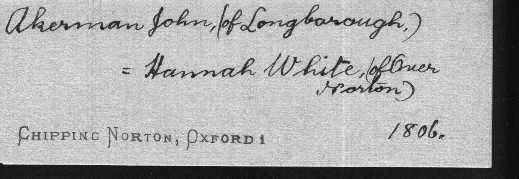 Akerman John, (of Longborough,)
= Hannah White, (of Over
Norton)
CHIPPING NORTON, OXFORD 1
1806.